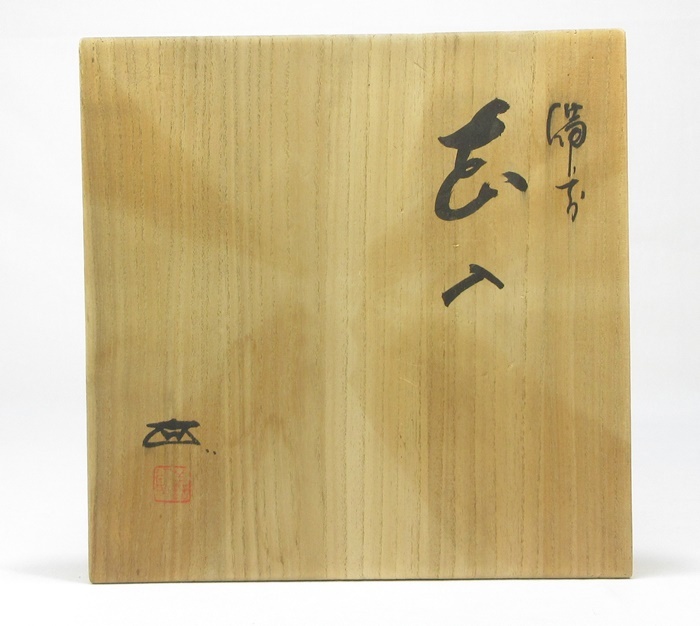 備前
花入